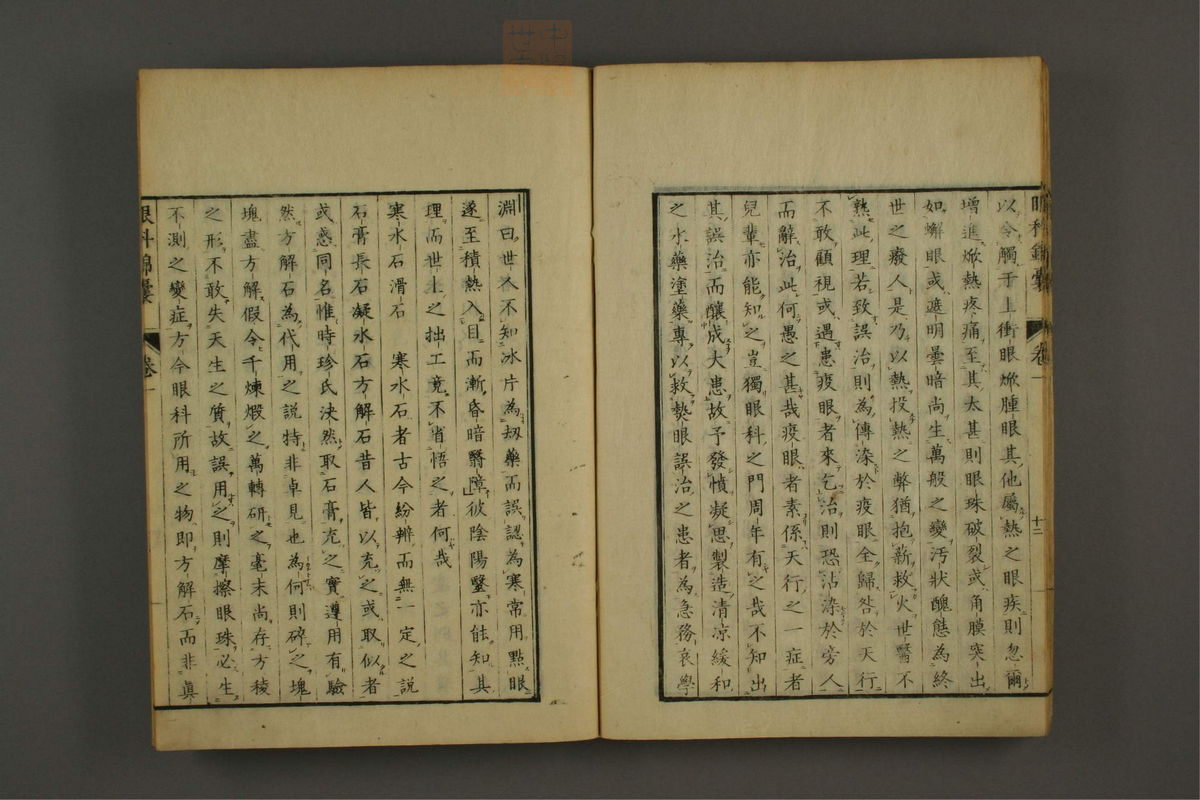 眼科錦囊 卷一 十二
以令觸于上衝眼焮腫眼其他屬熱之眼疾則忽爾
增進焮熱疼痛至其太甚則眼珠破裂或角膜突出
如蠏眼或遮明曇暗尚生萬般之變汚狀醜態為終
世之廢人是乃以熱投熱之弊猶抱薪救火世醫不
熟此理若致誤治則為傳染於疫眼全歸咎於天行
不敢顧視或遇患疫眼者來乞治則恐沾染於旁人
而辭治此何愚之甚哉疫眼者素係天行之一症者
兒輩亦能知之豈獨眼科之門周年有之哉不知出
其誤治而釀成大患故予發憤凝思製造清涼緩和
之水藥塗藥專以救㷟眼誤治之患者為急務哀學
淵曰世人不知冰片為刼藥而誤認為寒常用點眼
遂至積熱入目而漸昏暗翳障彼陰陽鑒亦能知其
理而世上之拙工竟不省悟之者何哉
寒水石滑石 寒水石者古今紛辨而無一定之說
石膏長石凝水石方解石昔人皆以充之或取似者
或惑同名惟時珍氏決然取石膏充之實遵用有驗
然方解石為代用之說特非卓見也為何則碎之塊
塊盡方解假令千煉煅之萬轉研之毫末尚存方稜
之形不敢失天生之質故誤用之則摩擦眼珠必生
不測之變症方今眼科所用之物即方解石而非眞
眼科錦囊 卷一